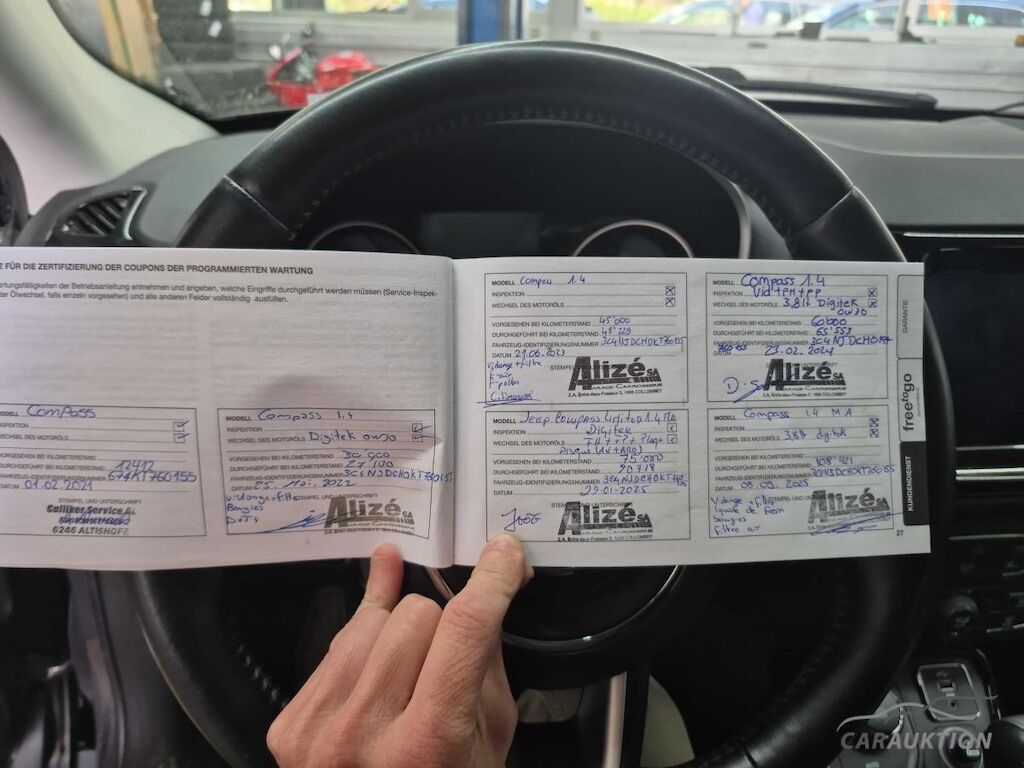 Z FÜR DIE ZERTIFIZIERUNG DER COUPONS DER PROGRAMMIERTEN WARTUNG
wertungsfähigkeiten der Betriebsanleitung entnehmen und angeben, welche Eingriffe durchgeführt werden müssen (Service-Inspek-
der Ölwechsel, falls einzeln vorgesehen) und alle anderen Felder vollständig ausfüllen.
Compass
SPEKTION
WECHSEL DES MOTORÖLS
VORGESEHEN BEI KILOMETERSTAND
DURCHGEFÜHRT BEI KILOMETERSTAND 12412
FAHRZEUG-IDENTIFIZIERUNGSNUMMER
DATUM 01.02.2021
STEMPEL UND UNTERSCHRIFT
Galliker Service AG
6246 ALTISHOFEN
MODELL Compass 1.4
INSPEKTION
WECHSEL DES MOTORÖLS Digitek 0W30
VORGESEHEN BEI KILOMETERSTAND 30'000
DURCHGEFÜHRT BEI KILOMETERSTAND
FAHRZEUG-IDENTIFIZIERUNGSNUMMER 3C4NJDCH0KT760155
DATUM 2022
STEMPEL UND UNTERSCHRIFT
Vidange + filtre
Bougies
Alizé SA
MODELL Compass 1.4
INSPEKTION
WECHSEL DES MOTORÖLS
VORGESEHEN BEI KILOMETERSTAND 45'000
DURCHGEFÜHRT BEI KILOMETERSTAND 48'229
FAHRZEUG-IDENTIFIZIERUNGSNUMMER 3C4NJDCH0KT760155
DATUM 21.06.2023
vidange + filtre
F air
F pollen
Alizé SA
GARAGE CARROSSERIE
MODELL Compass 1.4
INSPEKTION Vid + FH + FP
WECHSEL DES MOTORÖLS 3,8lt Digitek
0W30
VORGESEHEN BEI KILOMETERSTAND 60'000
DURCHGEFÜHRT BEI KILOMETERSTAND 65'555
FAHRZEUG-IDENTIFIZIERUNGSNUMMER 3C4NJDCH0KT
760155
DATUM 23.02.2024
Alizé SA
GARAGE CARROSSERIE
MODELL Jeep Compass Limited 1.4 MA
INSPEKTION Digitek
WECHSEL DES MOTORÖLS
VORGESEHEN BEI KILOMETERSTAND 75'000
DURCHGEFÜHRT BEI KILOMETERSTAND 90718
FAHRZEUG-IDENTIFIZIERUNGSNUMMER 3C4NJDCH0KT760155
DATUM 29-01-2025
STEMPEL UND UNTERSCHRIFT
Alizé SA
MODELL Compass 1.4 MA
INSPEKTION
WECHSEL DES MOTORÖLS 3,8lt digitek
VORGESEHEN BEI KILOMETERSTAND
DURCHGEFÜHRT BEI KILOMETERSTAND 108'421
FAHRZEUG-IDENTIFIZIERUNGSNUMMER 3C4NJDCH0KT760155
DATUM
STEMPEL UND UNTERSCHRIFT
Vidange + filtre
liquide de frein
bougies
filtre air
Alizé SA
GARANTIE
freetogo
KUNDENDIENST
27
CARAUKTION